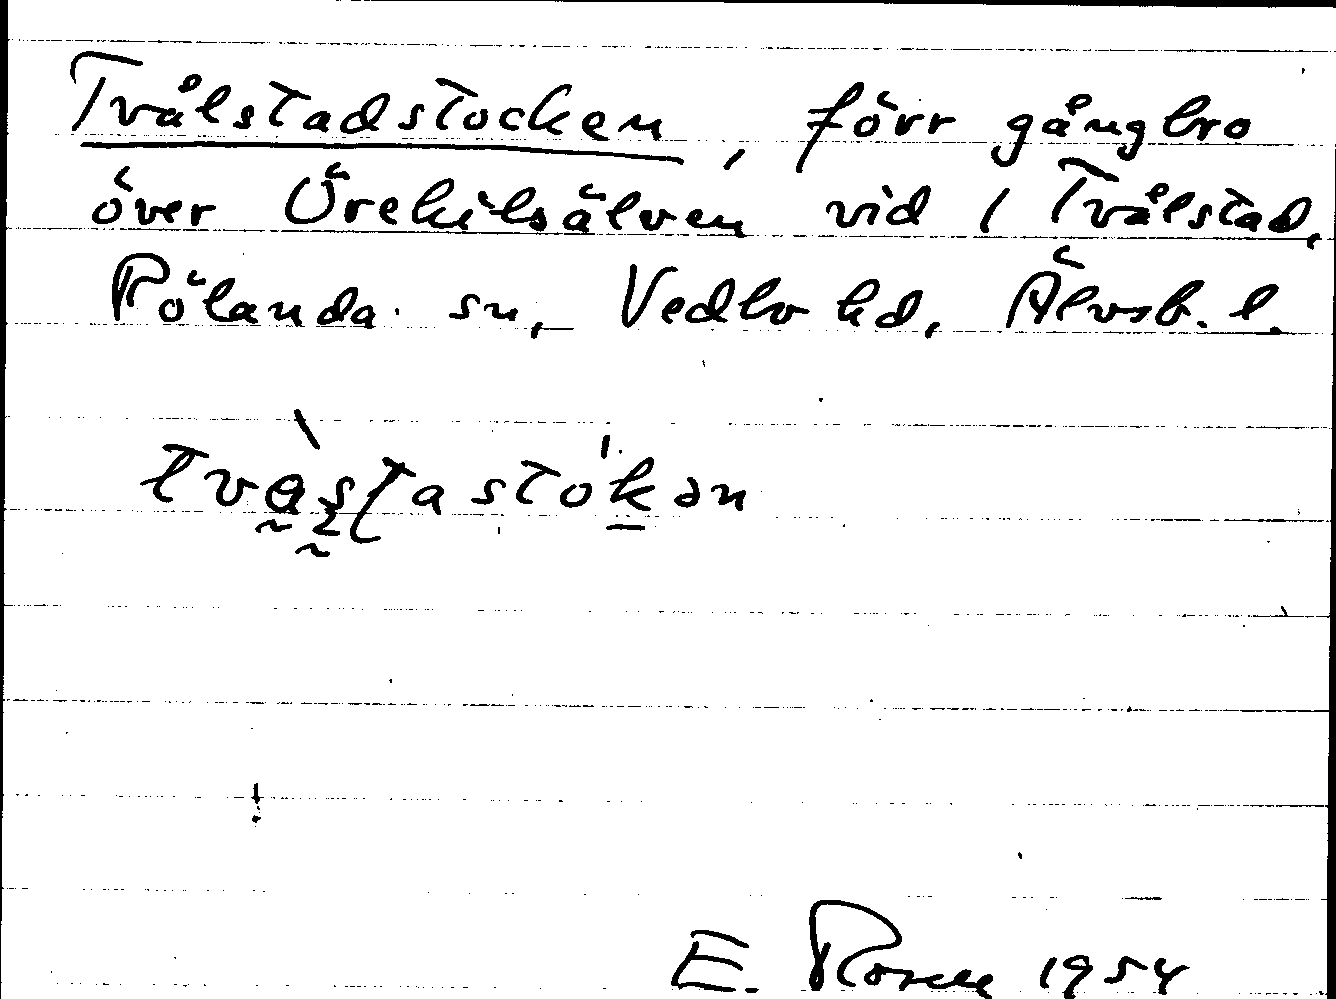 Tvålstadstocken, förr gångbro
över Örekilsälven vid 1 Tvålstad,
Rölanda sn, Vedbo hd, Älvsb. l.
E. Rosell 1954